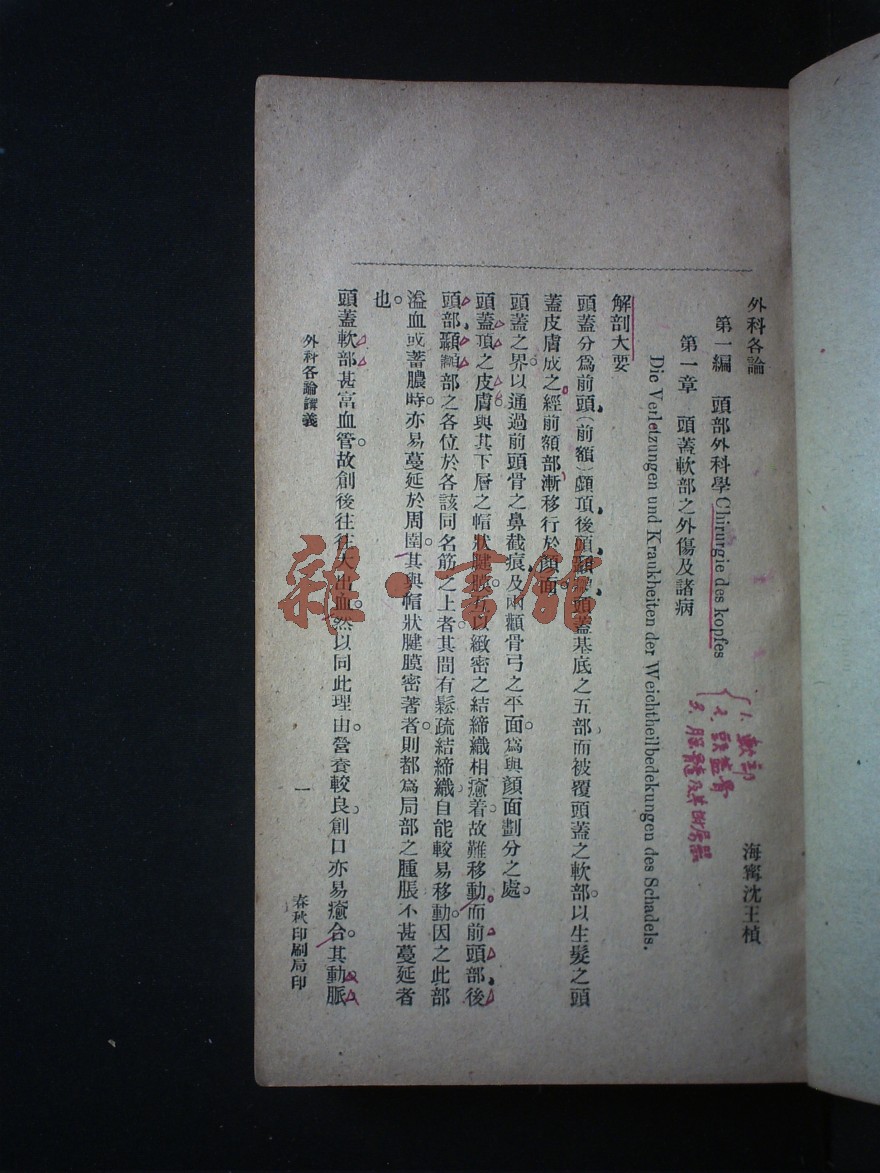 外科各論
海寗沈王楨
第一編 頭部外科學 Chirurgie des kopfes
第一章 頭蓋軟部之外傷及諸病
Die Verletzungen und Kraukheiten der Weichtheilbedekungen des Schadels.
1. 軟部
2. 頭蓋骨
3. 腦髓及其附屬器
解剖大要
頭蓋分爲前頭(前額)顱頂後頭顳顬頭蓋基底之五部而被覆頭蓋之軟部。以生髮之頭
蓋皮膚成之。經前額部漸移行於顏面。
頭蓋之界以通過前頭骨之鼻截痕及兩顴骨弓之平面。爲與顏面劃分之處。
頭蓋頂之皮膚與其下層之帽狀腱膜互以緻密之結締織相癒着故難移動。而前頭部後
頭部顳顬部之各位於各該同名筋之上者其間有鬆疏結締織。自能較易移動。因之此部
溢血或蓄膿時。亦易蔓延於周圍。其與帽狀腱膜密著者。則都爲局部之腫脹不甚蔓延者
也。
頭蓋軟部甚富血管。故創後往往大出血。然以同此理由。營養較良。創口亦易癒合。其動脈
外科各論講義
一
春秋印刷局印
雜·書館